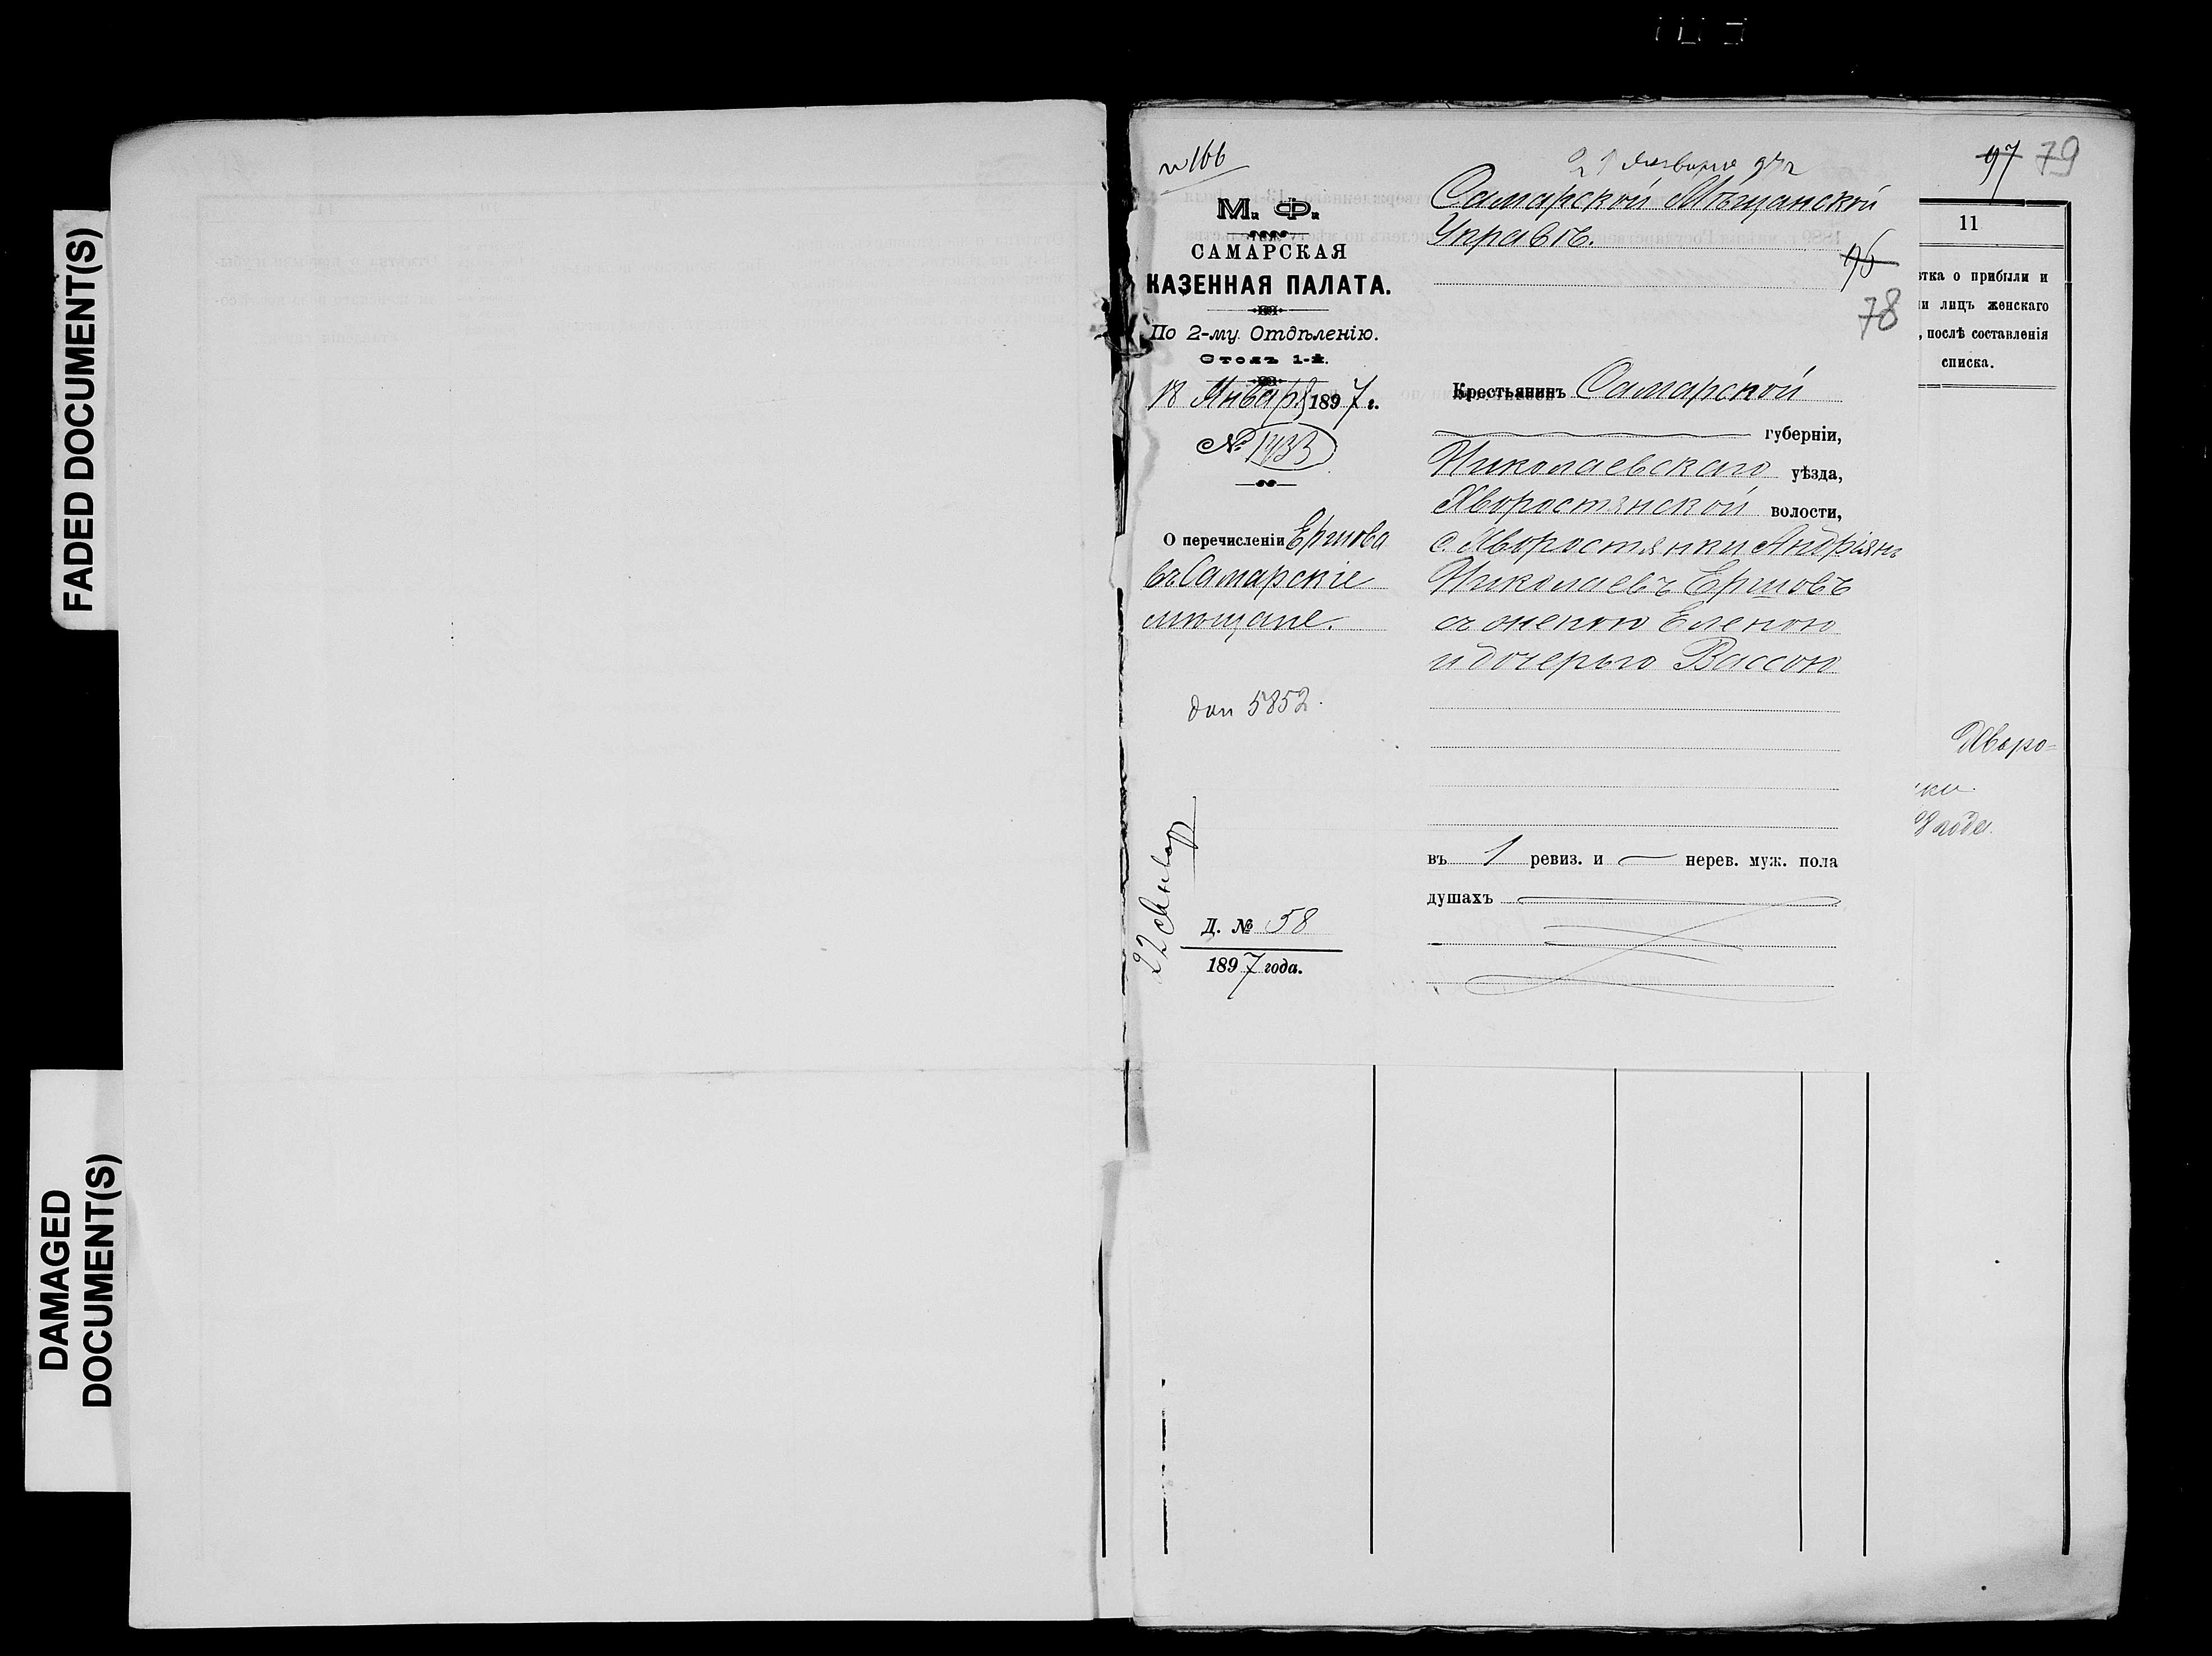 FADED DOCUMENT(S)
DAMAGED
DOCUMENT(S)
№ 166
М. Ф.
САМАРСКАЯ
КАЗЕННАЯ ПАЛАТА.
По 2-му Отдѣленію.
Столъ 1-й.
18 Января 1897 г.
№ 1433
О перечисленіи Ершова
въ Самарскіе
мѣщане.
доп 5852.
22 Январ
Д. № 58
1897 года.
21 Января 97 г
Самарской Мѣщанской
Управѣ.
96
78
Крестьянинъ Самарской
губерніи,
Николаевскаго уѣзда,
Хворостянской волости,
с. Хворостянки Андріянъ
Николаевъ Ершовъ
съ женою Еленою
и дочерью Вассою
въ 1 ревиз. и — нерев. муж. пола
душахъ
97 79
11
ѣтка о прибыли и
и лицъ женскаго
, послѣ составленія
списка.
Хворо=
ки
8 года.